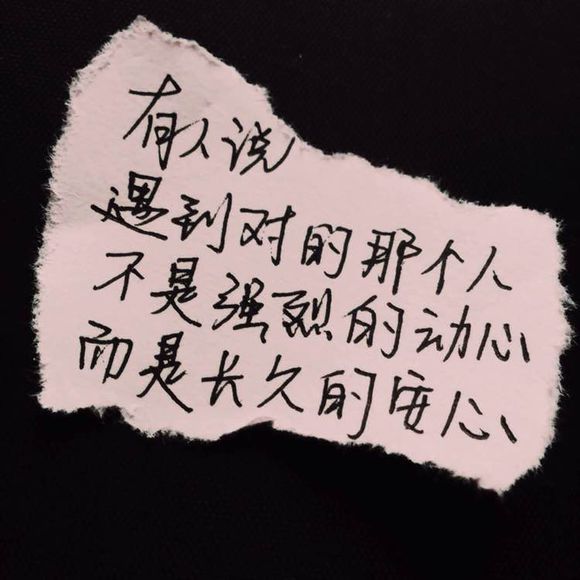 有人说
遇到对的那个人
不是强烈的动心
而是长久的安心